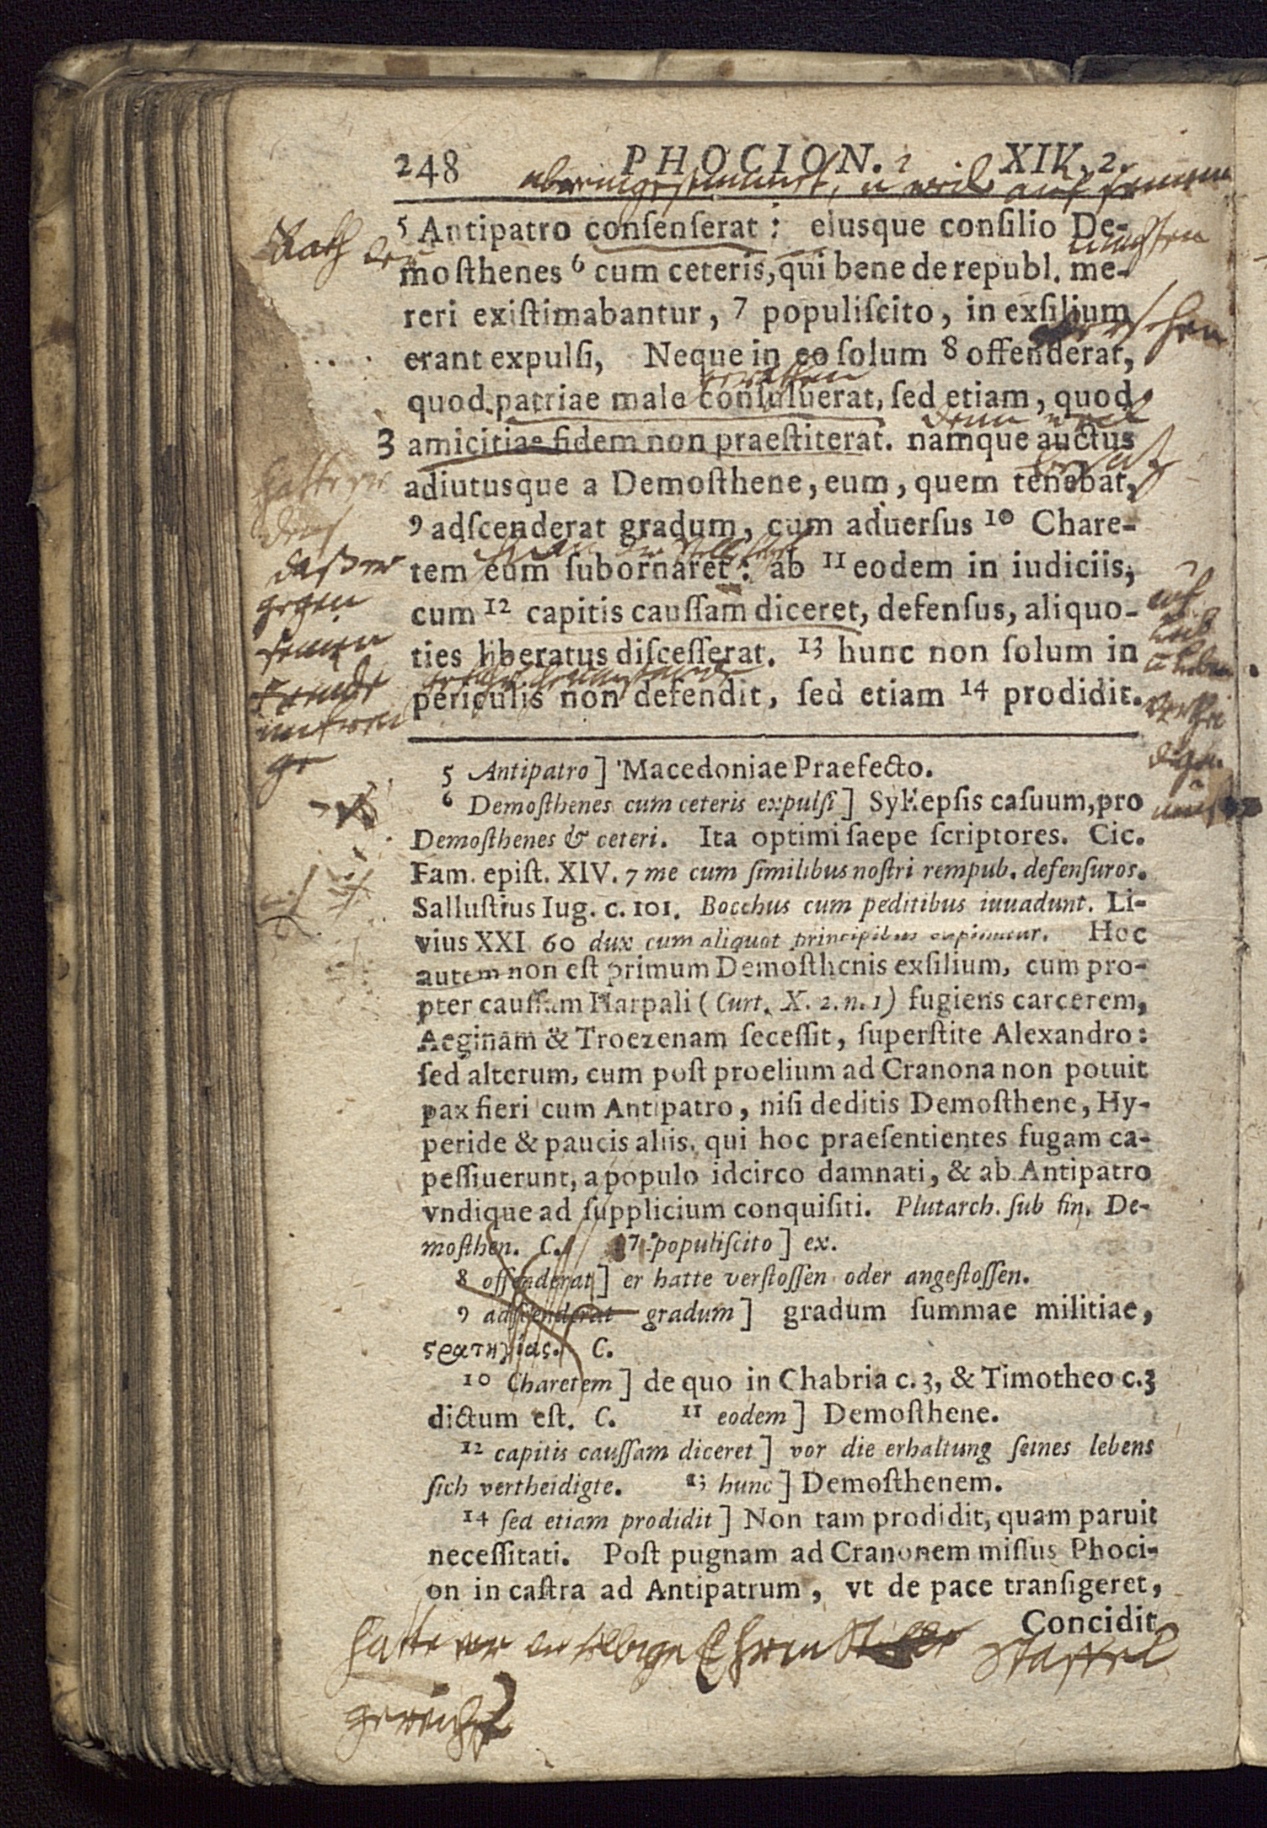 248 PHOCION. XIV. 2.
5 Antipatro conſenſerat: eiusque conſilio De-
moſthenes 6 cum ceteris, qui bene de republ. me-
reri exiſtimabantur, 7 populiſcito, in exſilium
erant expulſi, Neque in eo ſolum 8 offenderat,
quod patriae male conſuluerat, ſed etiam, quod
3 amicitiae fidem non praeſtiterat. namque auctus
adiutusque a Demoſthene, eum, quem tenebat,
9 adſcenderat gradum, cum aduerſus 10 Chare-
tem eum ſubornaret: ab 11 eodem in iudiciis,
cum 12 capitis cauſſam diceret, defenſus, aliquo-
ties liberatus diſceſſerat. 13 hunc non ſolum in
periculis non defendit, ſed etiam 14 prodidit.
Rath
daß er
gegen
ſeinen
5 Antipatro] Macedoniae Praefecto.
6 Demoſthenes cum ceteris expulſi] Syllepſis caſuum, pro
Demoſthenes & ceteri. Ita optimi ſaepe ſcriptores. Cic.
Fam. epiſt. XIV. 7 me cum ſimilibus noſtri rempub. defenſuros.
Salluſtius Iug. c. 101. Bocchus cum peditibus inuadunt. Li-
vius XXI 60 dux cum aliquot principibus capiuntur. Hoc
autem non eſt primum Demoſthenis exſilium, cum pro-
pter cauſſam Harpali (Curt. X. 2. n. 1) fugiens carcerem,
Aeginam & Troezenam ſeceſſit, ſuperſtite Alexandro:
ſed alterum, cum poſt proelium ad Cranona non potuit
pax fieri cum Antipatro, niſi deditis Demoſthene, Hy-
peride & paucis aliis, qui hoc praeſentientes fugam ca-
peſſiuerunt, a populo idcirco damnati, & ab Antipatro
vndique ad ſupplicium conquiſiti. Plutarch. ſub fin. De-
moſthen. C. 7 populiſcito] ex.
8 offenderat] er hatte verſtoſſen oder angeſtoſſen.
9 adſcenderat gradum] gradum ſummae militiae,
ϛρατηγίας. C.
10 Charetem] de quo in Chabria c. 3, & Timotheo c. 3
dictum eſt. C. 11 eodem] Demoſthene.
12 capitis cauſſam diceret] vor die erhaltung ſeines lebens
ſich vertheidigte. 13 hunc] Demoſthenem.
14 ſed etiam prodidit] Non tam prodidit, quam paruit
neceſſitati. Poſt pugnam ad Cranonem miſſus Phoci-
on in caſtra ad Antipatrum, vt de pace tranſigeret,
Concidit
hatte er
Staffel